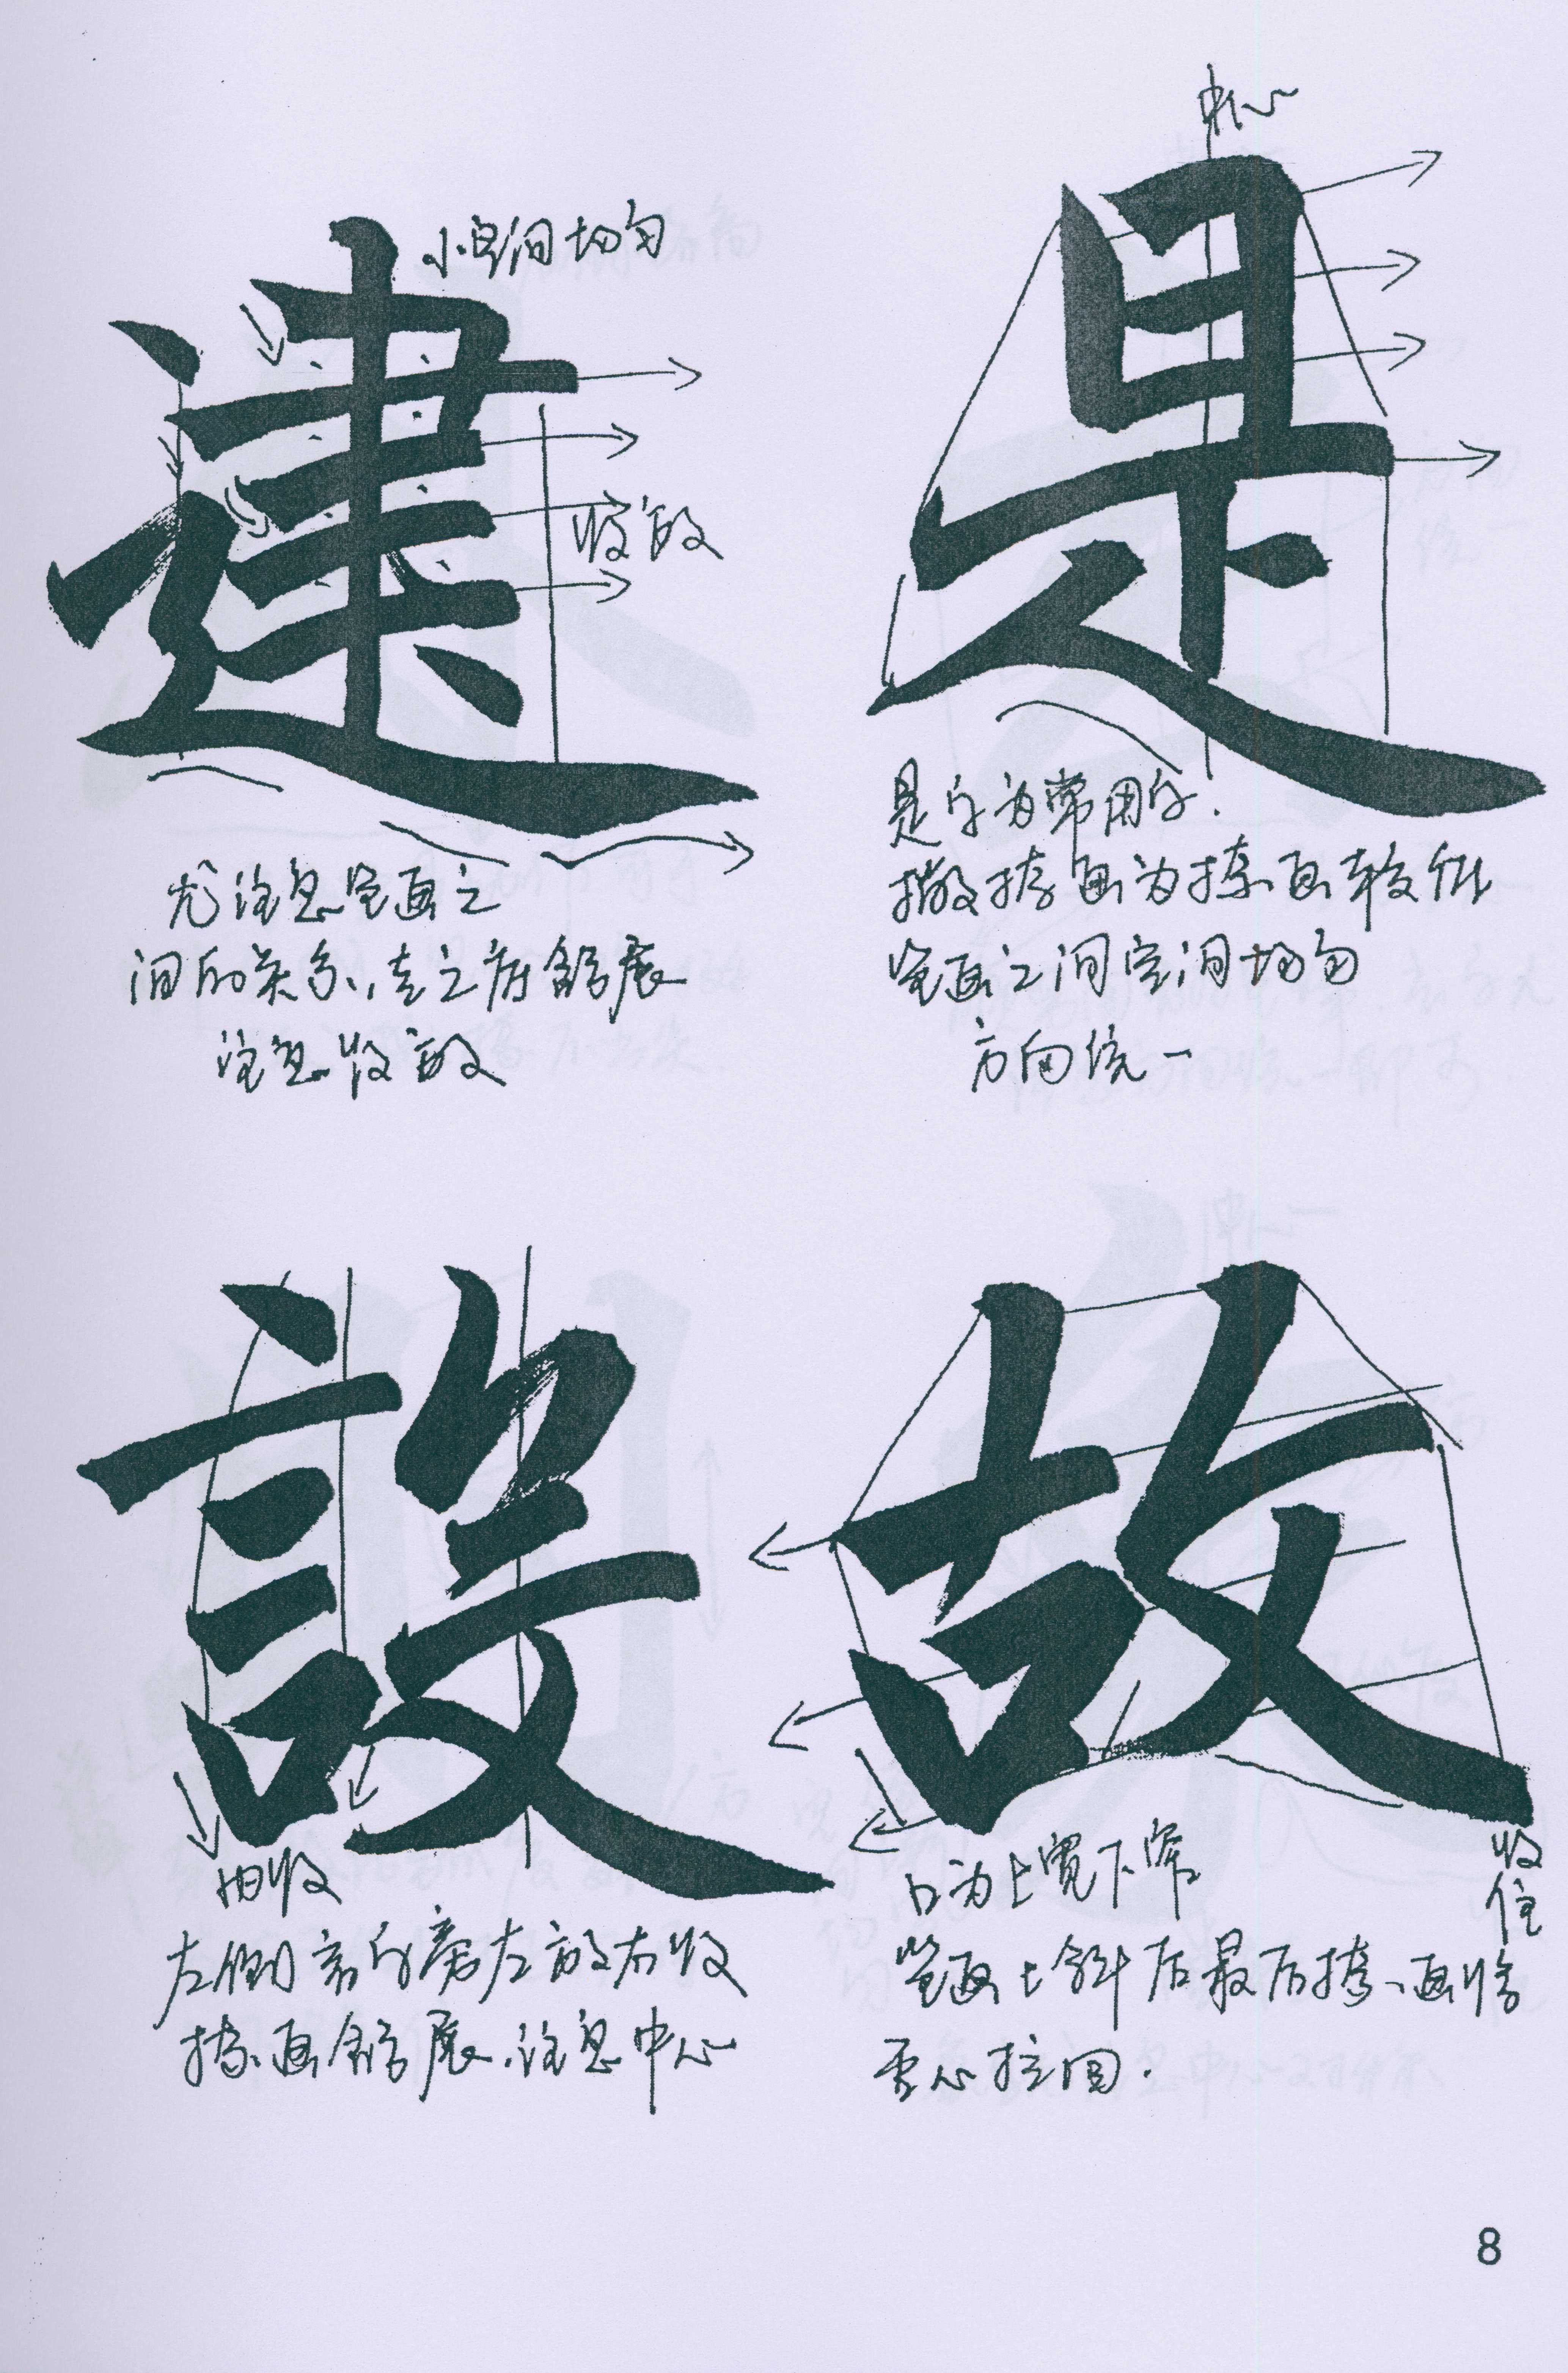 中心
小空间均匀
建
是
收放
尤注意笔画之
间的关系、走之底舒展
注意收放
是字为常用字.
撇捺画为捺画较低
笔画之间空间均匀
方向统一
設
故
内收
左侧言字旁左放右收
捺画舒展.注意中心
口为上宽下窄
收住
笔画上斜后最后捺画将
重心拉回.
8